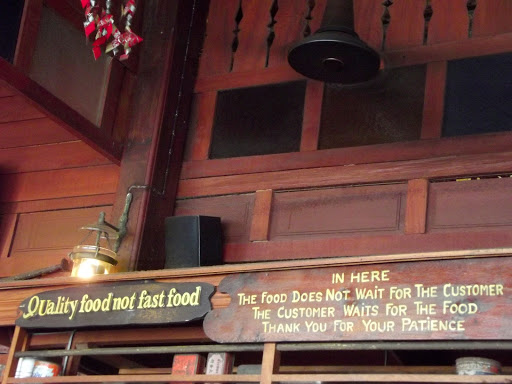 Quality food not fast food
IN HERE
THE FOOD DOES NOT WAIT FOR THE CUSTOMER
THE CUSTOMER WAITS FOR THE FOOD
THANK YOU FOR YOUR PATIENCE